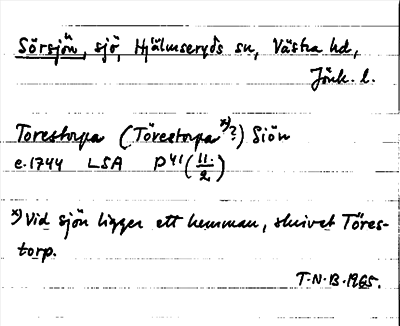 Sörsjön, sjö, Hjälmseryds sn, Västra hd,
Jönk. l.
Torestorpa (Törestorpa *)?) Siön
e. 1744 LSA P 41 (11/2)
*) Vid sjön ligger ett hemman, skrivet Töres-
torp.
T.N.B. 1965.